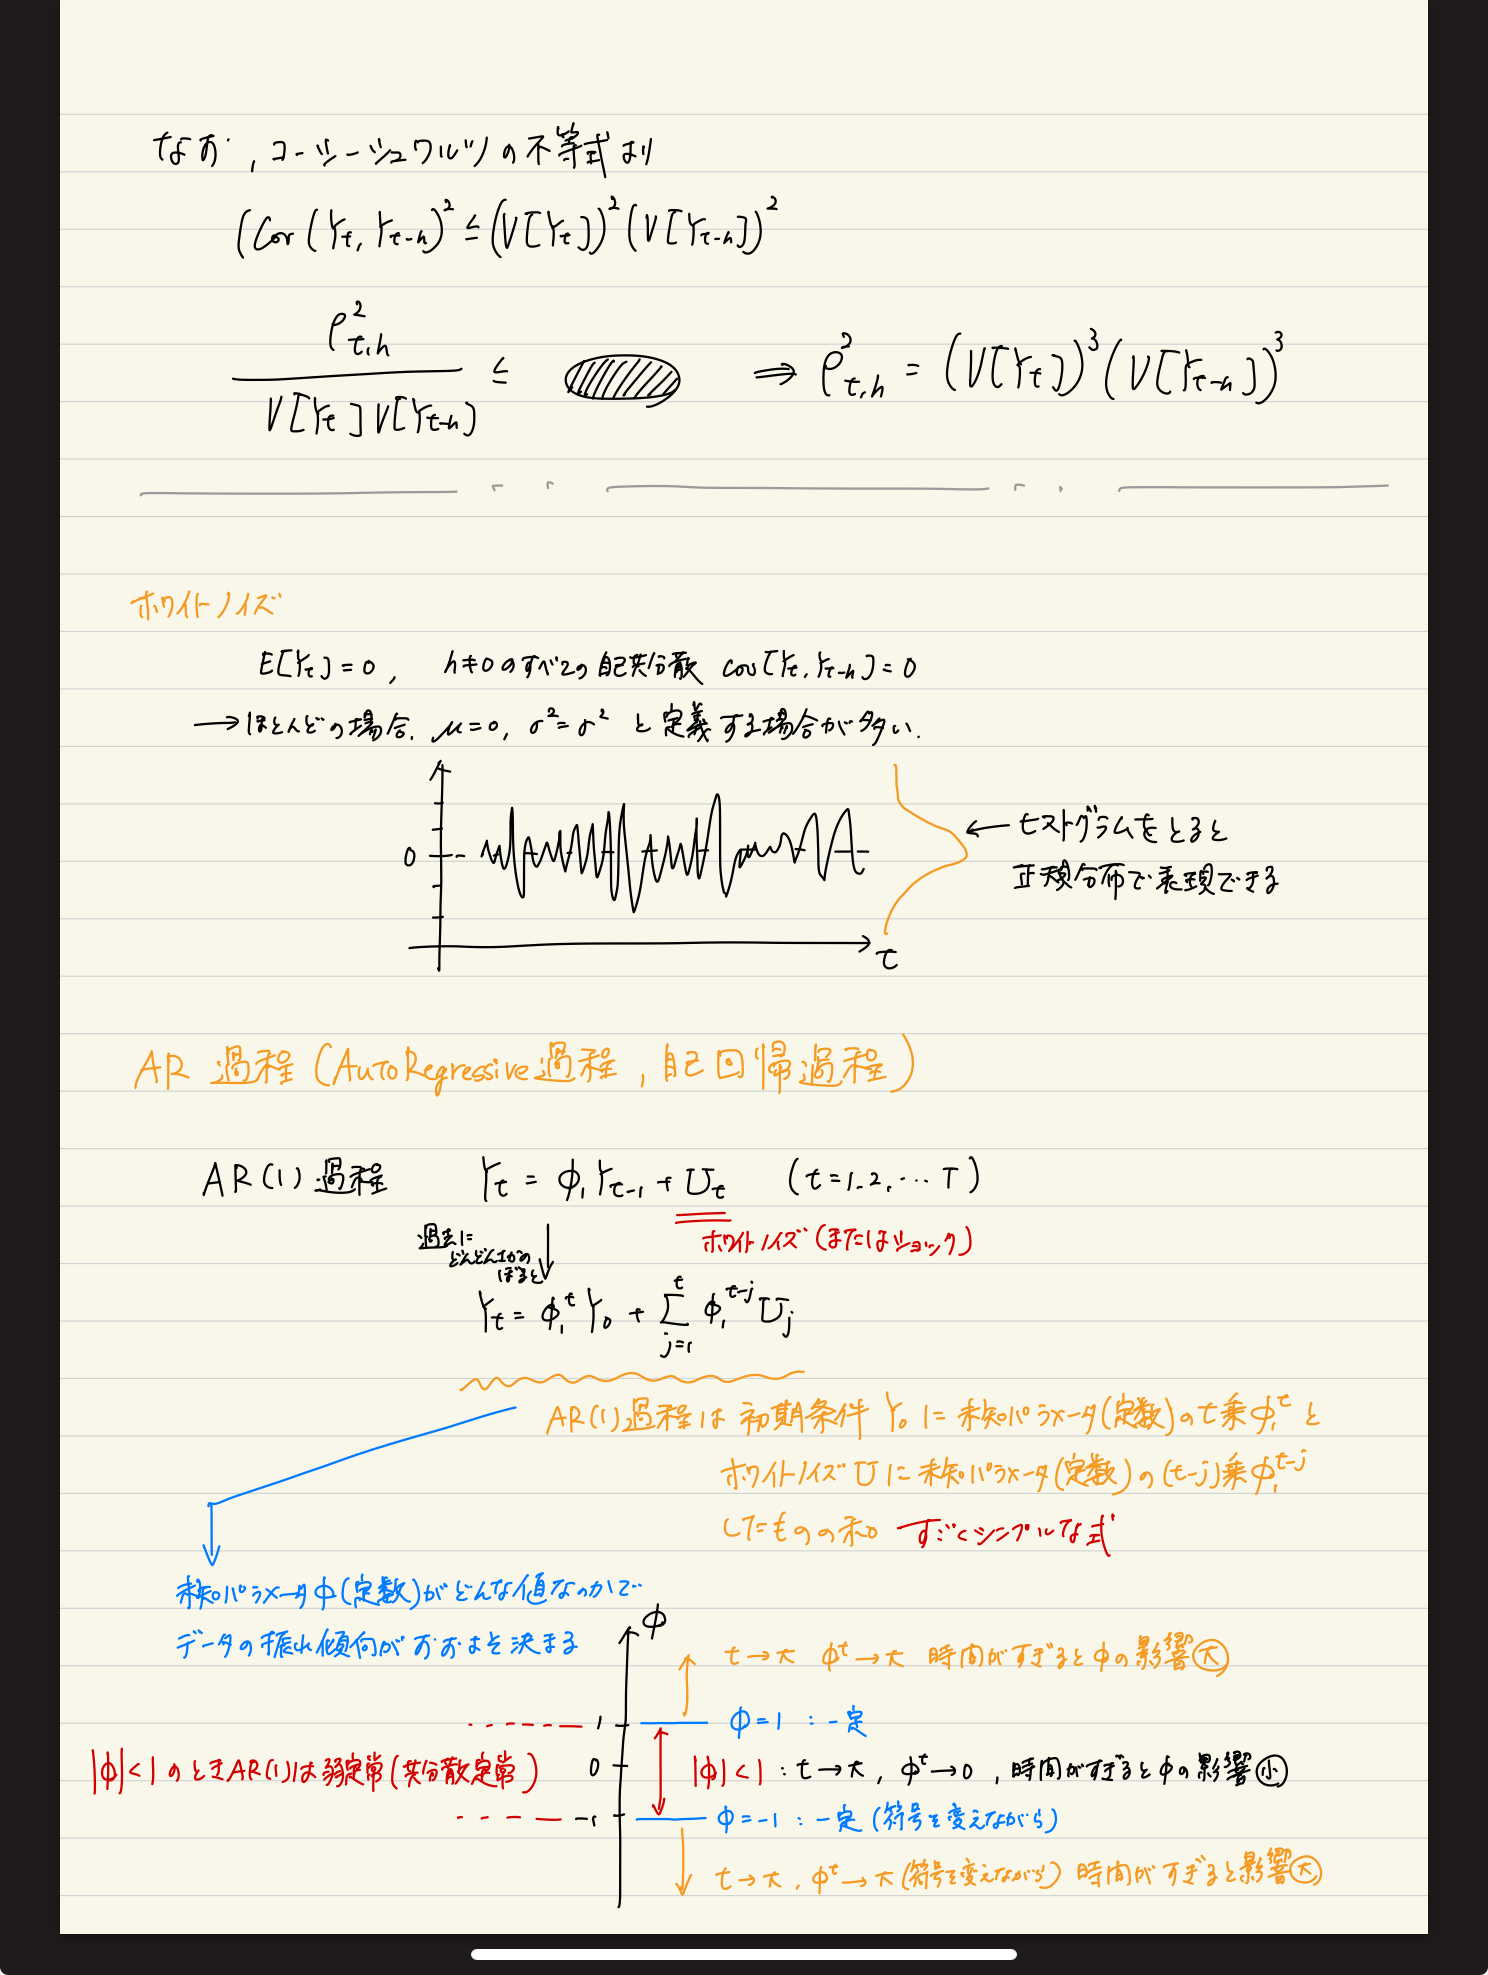 なお, コーシーシュワルツの不等式より
(Cor (Yt, Yt-h)² ≤ (V[Yt])² (V[Yt-h])²
ρ²t,h / V[Yt] V[Yt-h] ≤ ⇒ ρ²t,h = (V[Yt])³ (V[Yt-h])³
ホワイトノイズ
E[Yt] = 0, h≠0 のすべての自己共分散 cov[Yt, Yt-h] = 0
→ ほとんどの場合, μ=0, σ²=σ² と定義する場合が多い.
0
t
← ヒストグラムをとると
正規分布で表現できる
AR 過程 (AutoRegressive過程, 自己回帰過程)
AR(1) 過程 Yt = φ₁Yt-1 + Ut (t=1,2,…T)
ホワイトノイズ (またはショック)
過去に
どんどんさかの
ぼると
Yt = φ₁^t Y₀ + Σ_{j=1}^{t} φ₁^{t-j} Uj
AR(1)過程は 初期条件 Y₀ に 未知パラメータ(定数)のt乗φ₁^t と
ホワイトノイズ U に 未知パラメータ(定数)の(t-j)乗φ₁^{t-j}
したものの和。 すごくシンプルな式
未知パラメータφ(定数)がどんな値なのかで
データの振れ傾向がおおよそ決まる
φ
t→大 φ^t→大 時間がすぎるとφの影響大
1 φ=1 : 一定
|φ|<1 のときAR(1)は弱定常(共分散定常)
0 |φ|<1 : t→大, φ^t→0, 時間がすぎるとφの影響小
-1 φ=-1 : 一定 (符号を変えながら)
t→大, φ^t→大 (符号を変えながら) 時間がすぎると影響大